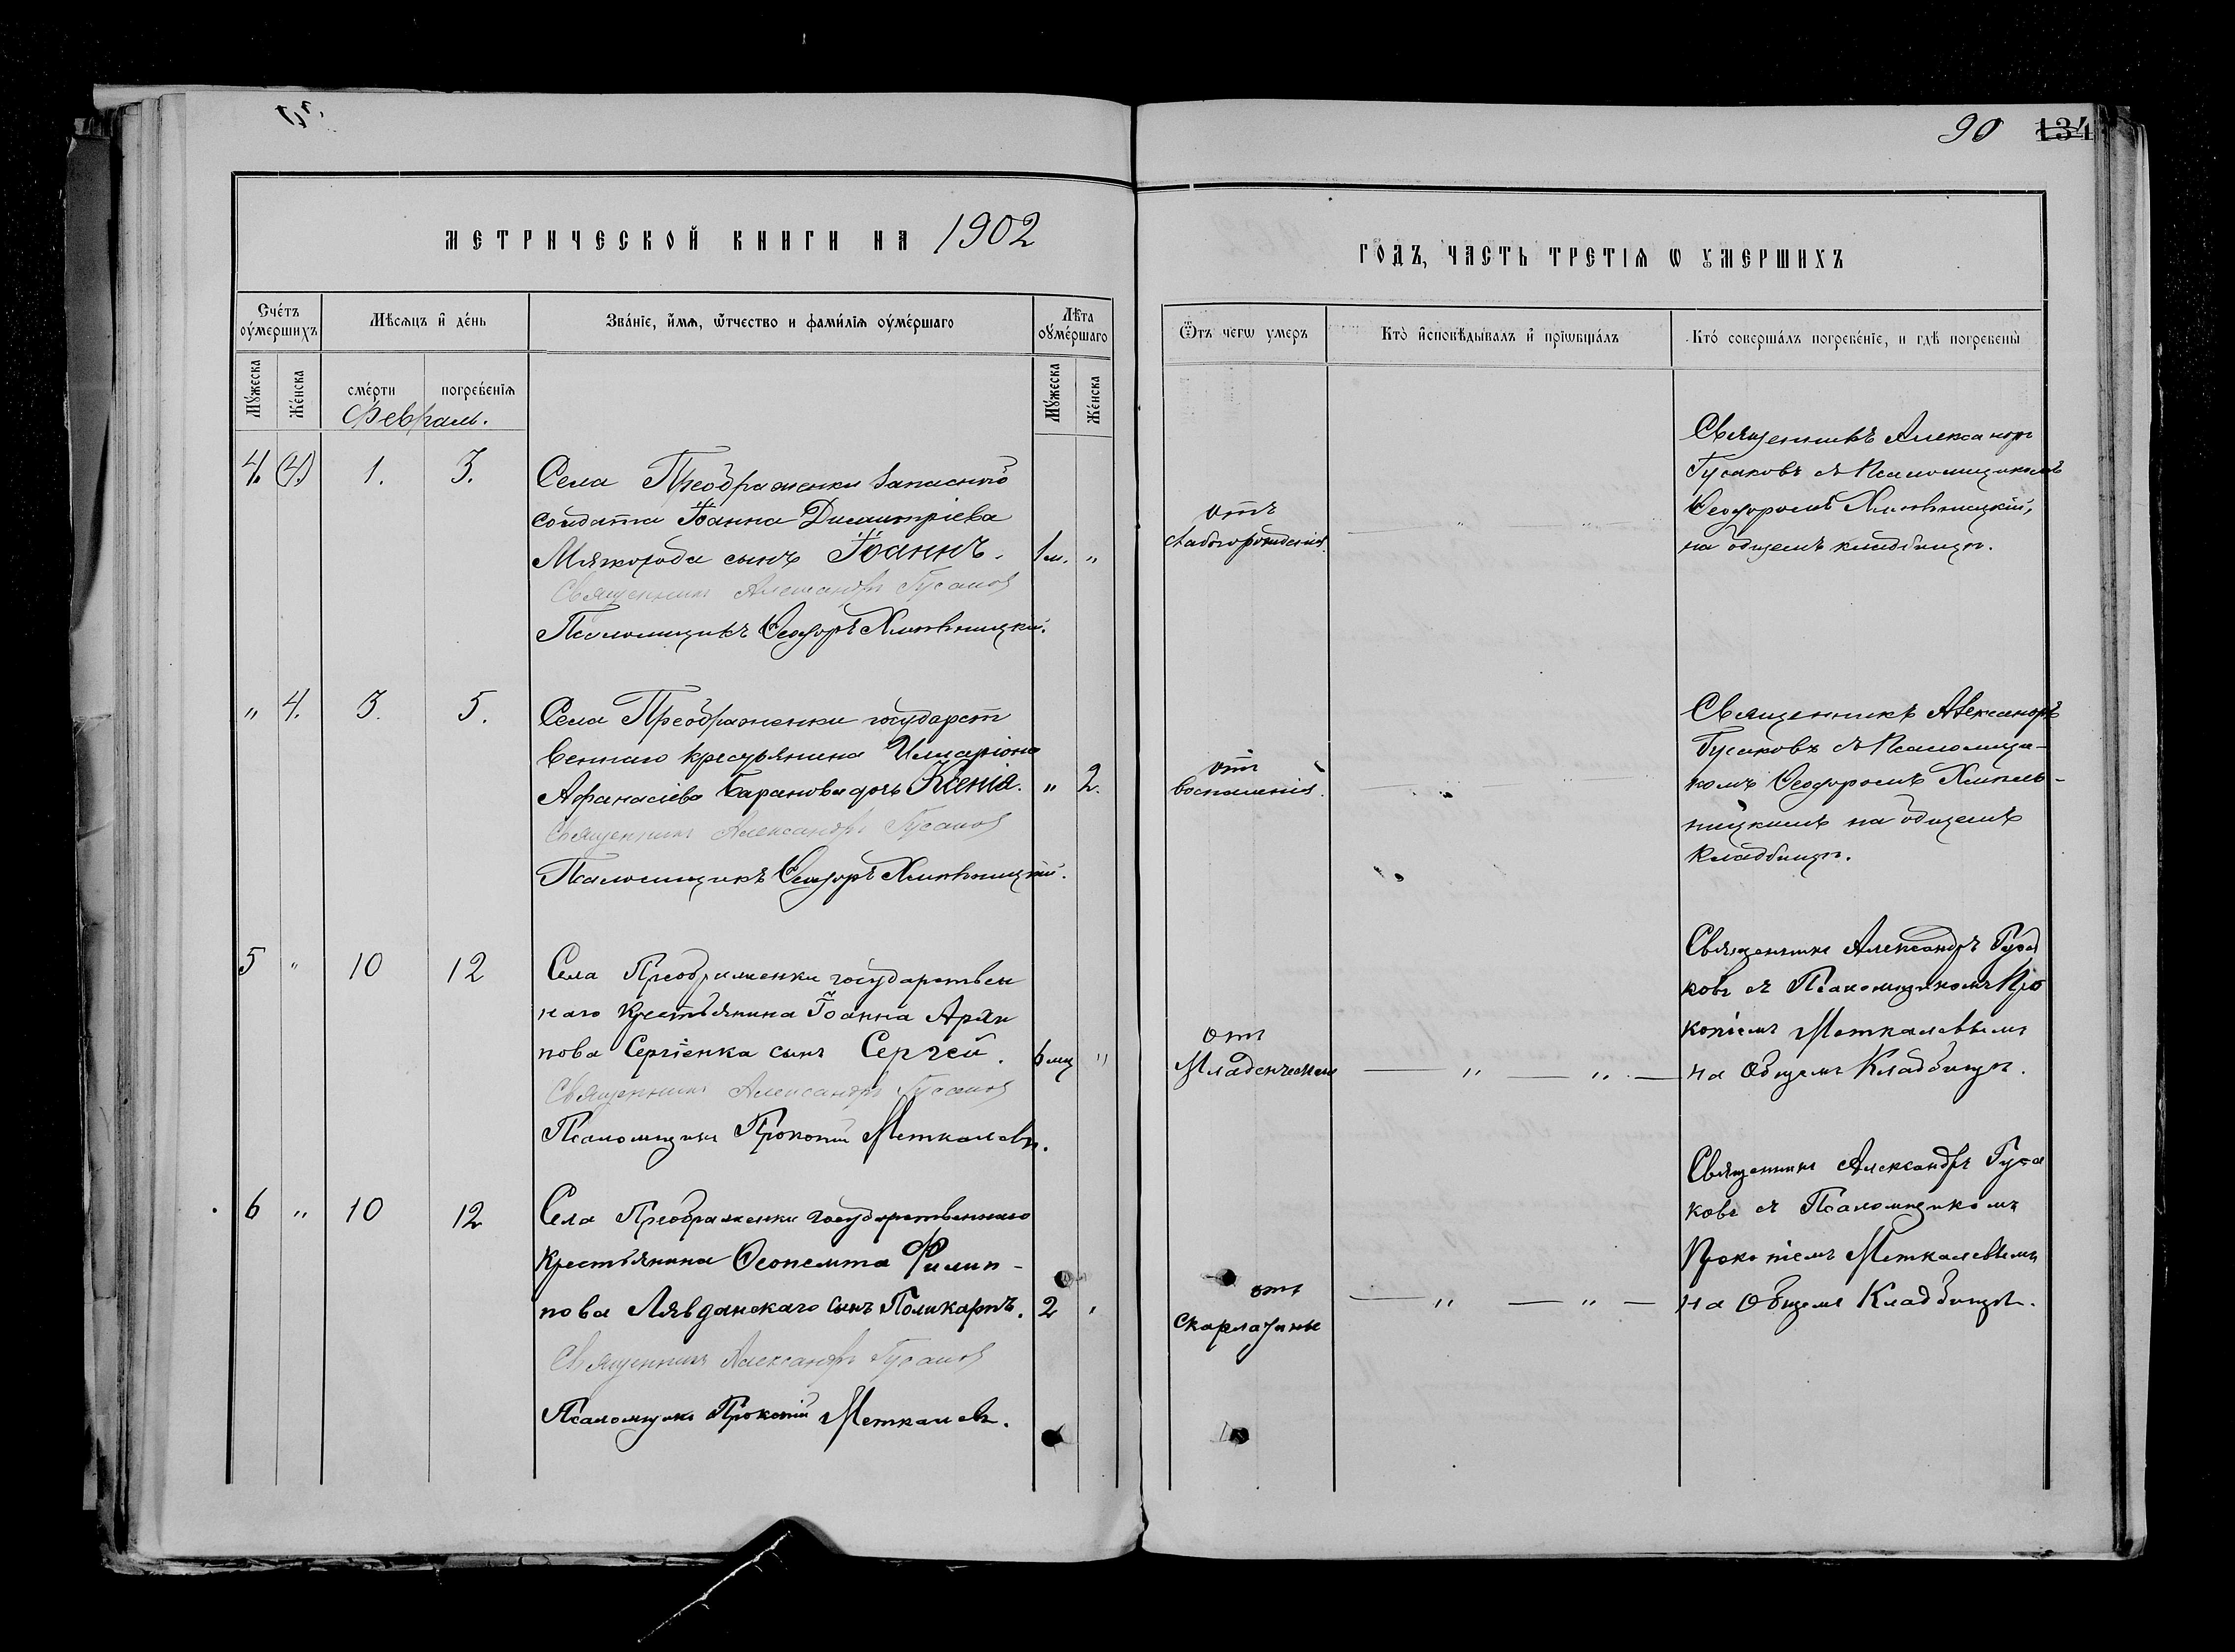 90 134
МЕТРИЧЕСКОЙ КНИГИ НА 1902
ГОДЪ, ЧАСТЬ ТРЕТІѦ Ѡ УМЕРШИХЪ
Сче́тъ оумершихъ
Мѣсѧцъ и де́нь
Зва́ніе, и́мѧ, ѿтчество и фами́лія оуме́ршаго
Лѣта оуме́ршаго
Ѿтъ чегѡ умеръ
Кто̀ исповѣдывалъ и пріѡбща́лъ
Кто́ соверша́лъ погребе́ніе, и гдѣ погребены̀
Му́жеска
Же́нска
сме́рти
погребе́нія
Му́жеска
Же́нска
Февраль.
4. (4) 1. 3.
Села Преображенки запаснаго
солдата Іоанна Димитріева
Мяжорода сынъ Іоаннъ. 1 м. "
Священникъ Александръ Гусаков
Псаломщикъ Ѳеодоръ Хмѣльницкій.
отъ
слаборожденія.
Священникъ Александръ
Гусаковъ съ Псаломщикомъ
Ѳеодоромъ Хмѣльницкій,
на общемъ кладбищѣ.
" 4. 3. 5.
Села Преображенки государст
веннаго крестьянина Илларіона
Афанасіева Баранова дочь Ксенія. " 2.
Священникъ Александръ Гусаков
Псаломщикъ Ѳеодоръ Хмѣльницкій.
отъ
воспаленія.
Священникъ Александръ
Гусаковъ съ Псаломщи-
комъ Ѳеодоромъ Хмель-
ницкимъ на общемъ
кладбищѣ.
5 " 10 12
Села Преображенки государствен
наго крестьянина Іоанна
нова Сергіенка сынъ Сергей. 6 мц "
Священникъ Александръ Гусаков
Псаломщикъ Прокопій Меткалевъ.
отъ
Младенческой
— " — " —
Священникъ Александръ Гуса
ковъ съ Псаломщикомъ Про
копіемъ Меткалевымъ
на Общемъ Кладбищѣ.
6 " 10 12
Села Преображенки государственнаго
крестьянина Ѳеопемта Филип-
пова Лявданскаго сынъ Поликарпъ. 2 "
Священникъ Александръ Гусаков
Псаломщикъ Прокопій Меткалевъ.
отъ
скарлатины
— " — " —
Священникъ Александръ Гуса
ковъ съ Псаломщикомъ
Прокопіемъ Меткалевымъ
на Общемъ Кладбищѣ.